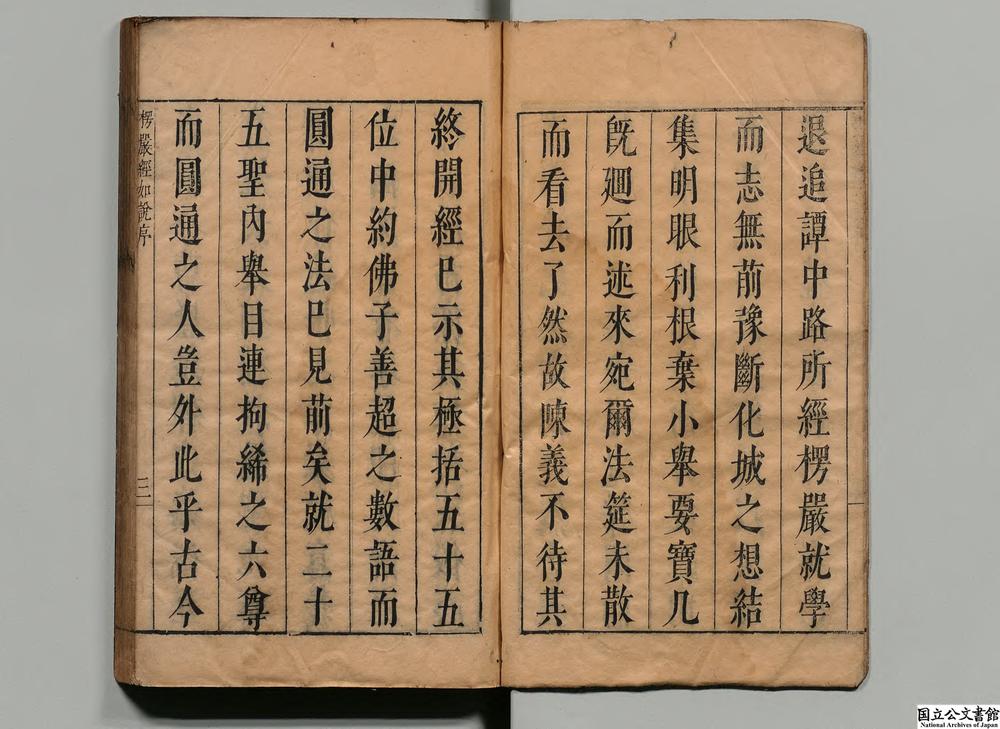 退追譚中路所經楞嚴就學
而志無前豫斷化城之想結
集明眼利根棄小舉要寶几
旣廻而述來宛爾法筵未散
而看去了然故陳義不待其
終開經已示其極括五十五
位中約佛子善超之數語而
圓通之法巳見前矣就二十
五聖內舉目連拘絺之六尊
而圓通之人豈外此乎古今
楞嚴經如說序
三
国立公文書館
National Archives of Japan